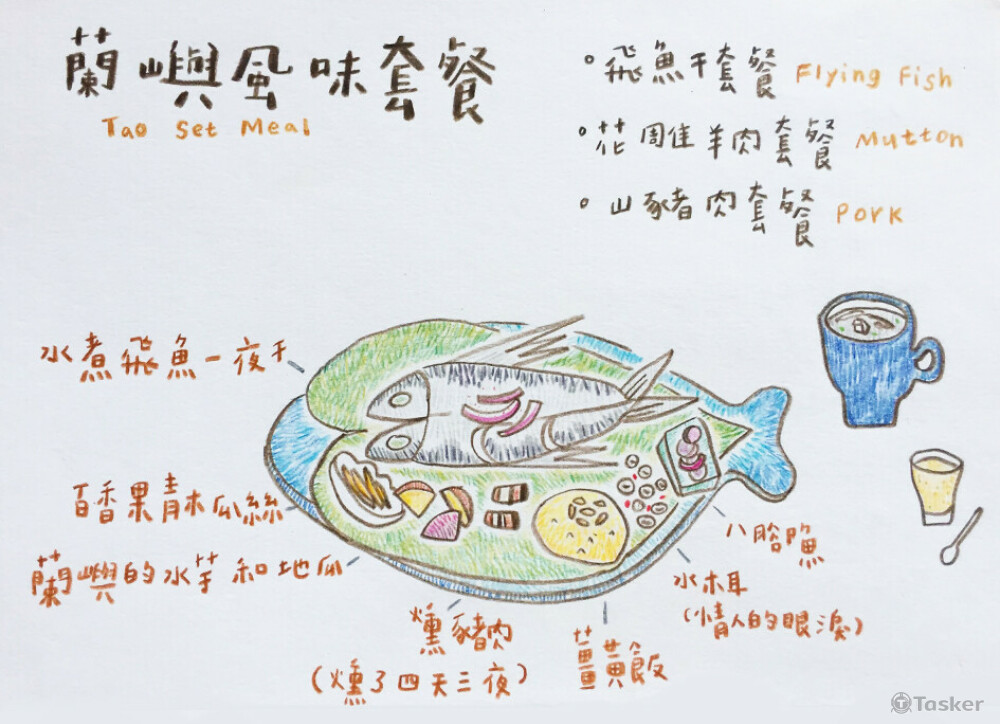 蘭嶼風味套餐
Tao Set Meal
飛魚干套餐 Flying Fish
花雕雞羊肉套餐 Mutton
山豬肉套餐 Pork
水煮飛魚一夜干
百香果青木瓜絲
蘭嶼的水芋和地瓜
燻豬肉
(燻了四天三夜)
薑黃飯
水木耳
(情人的眼淚)
八爪魚
Tasker